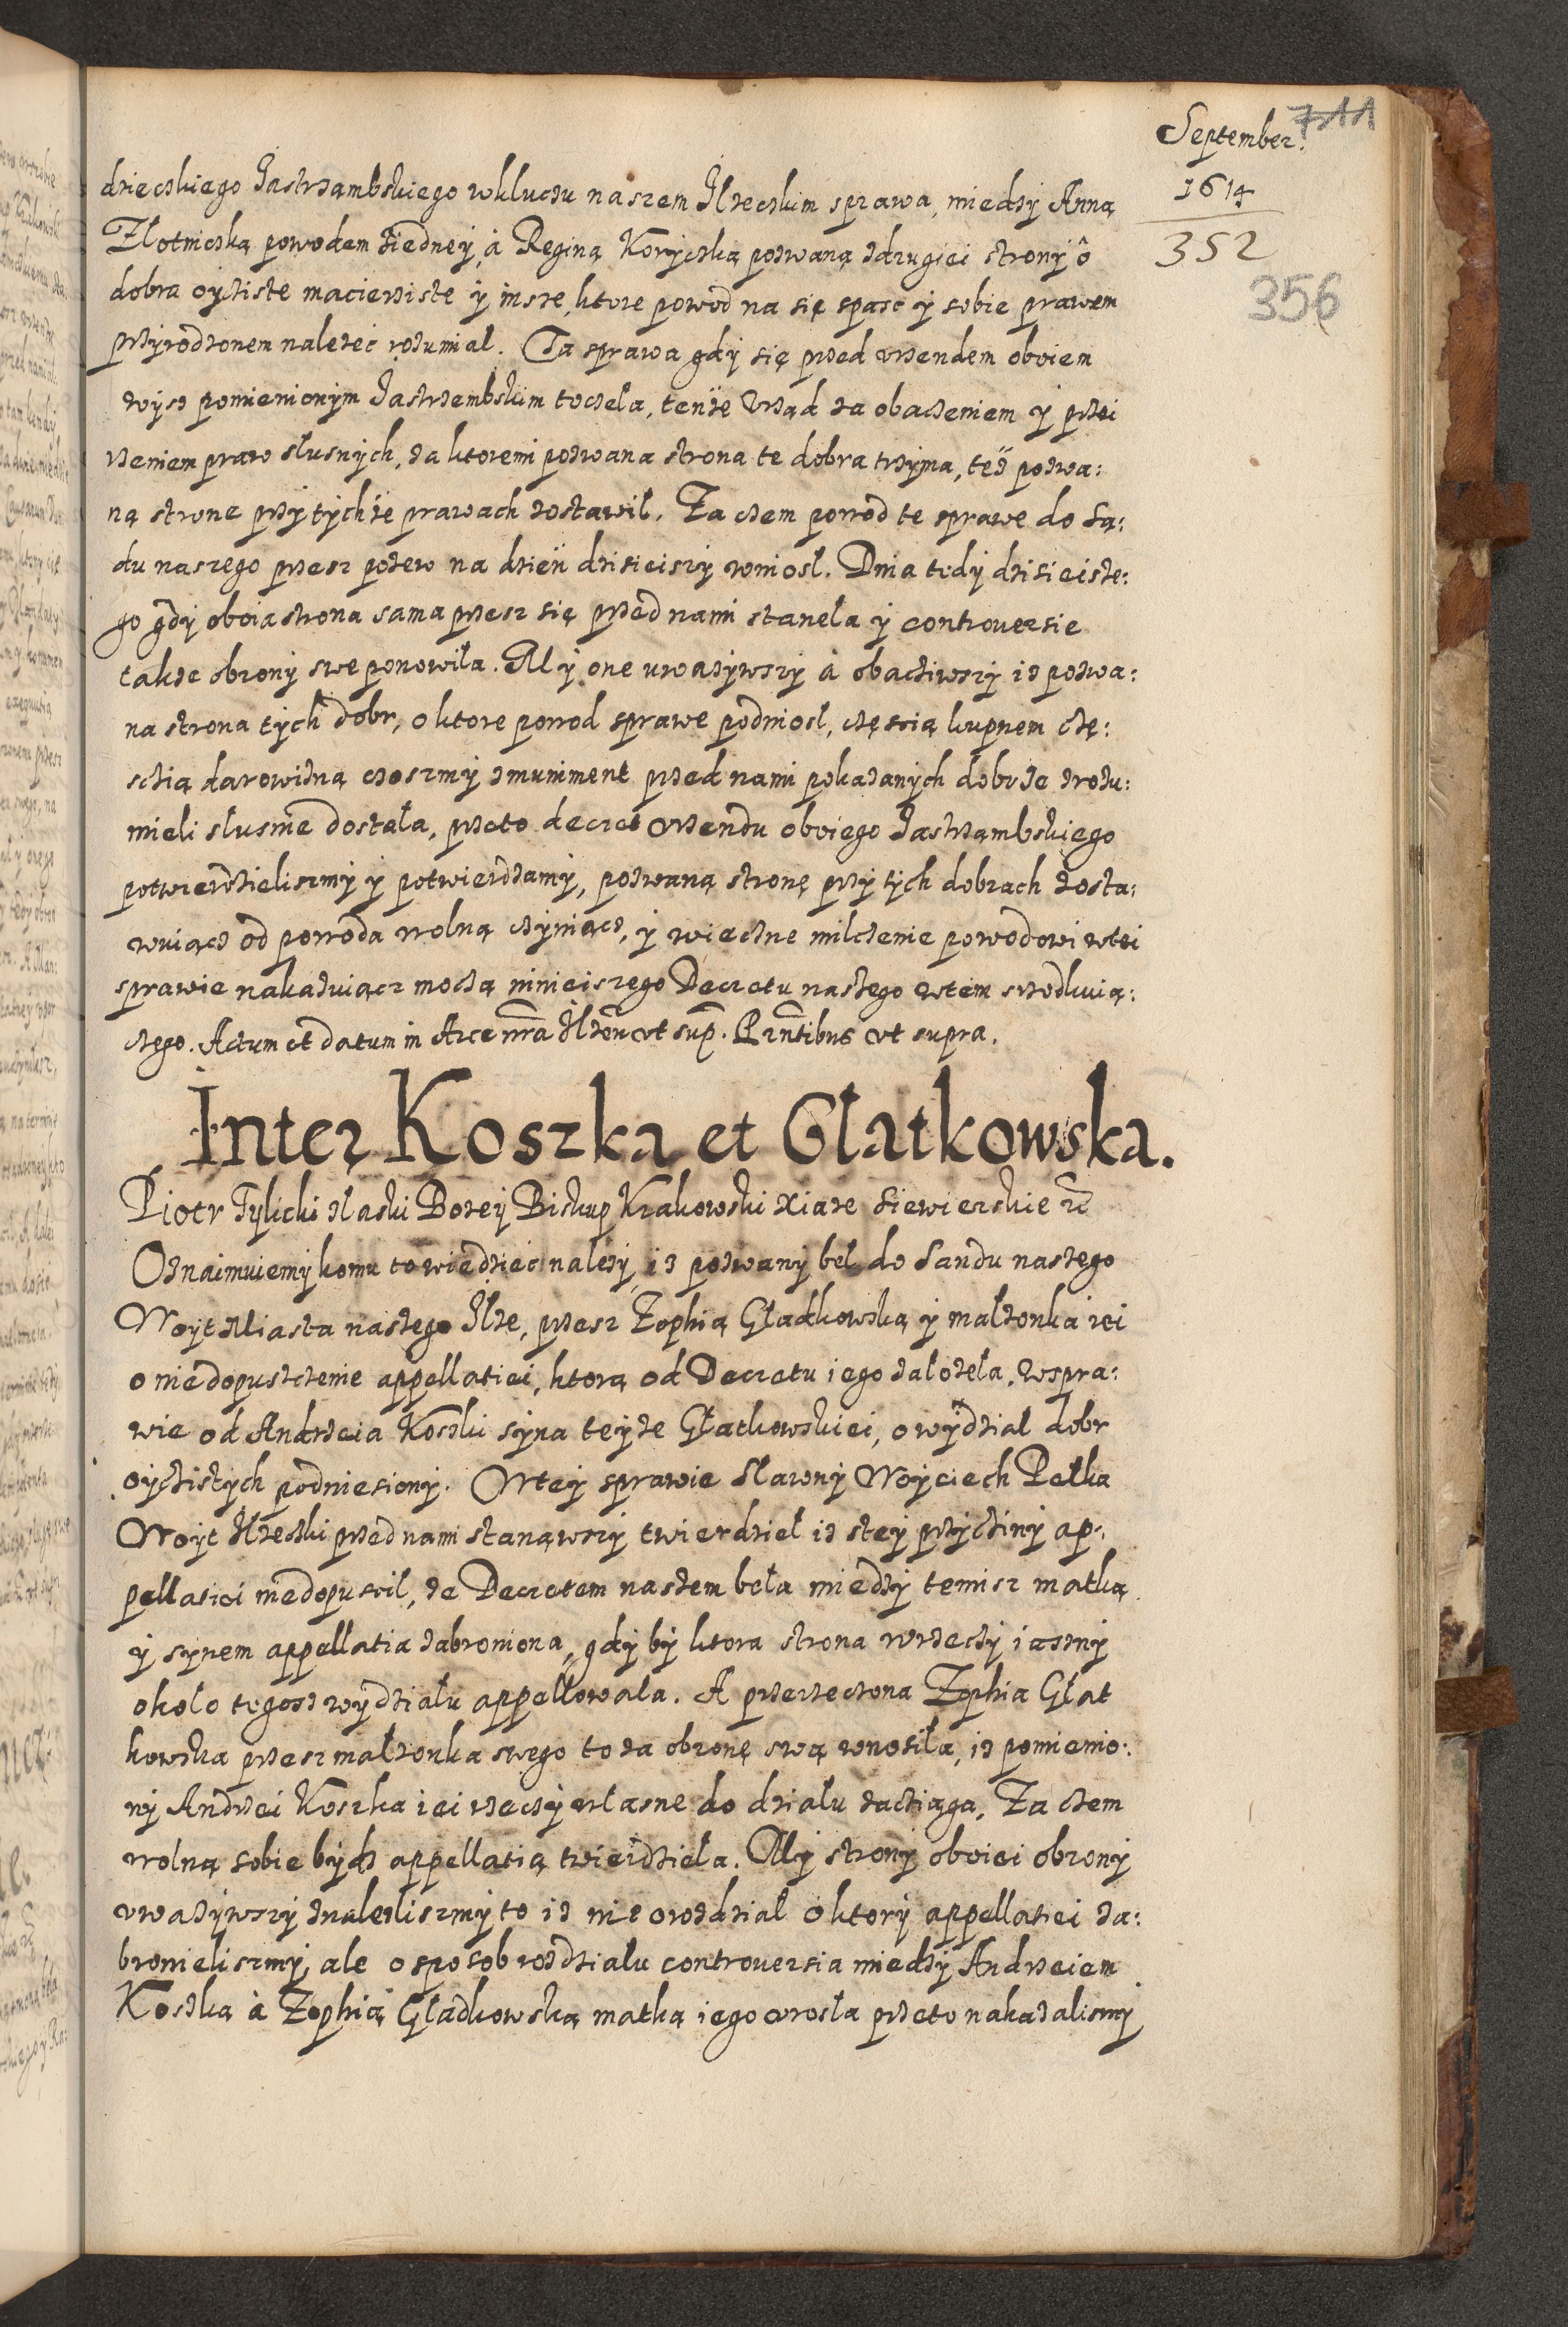 September.
711
1614
352
356
dzieczkiego Jastrzambskiego wkluczu naszem Ilzeczkim sprawa, miedzy Anną
Złotniczką powodem ziedney, à Reginą Koryczką pozwaną zdrugiei strony ô
dobra oycziste macierziste y insze, ktore powod na się spasc y sobie prawem
przyrodzonem nalezec rozumial. Ta sprawa gdy się przed urzendem oboiem
wysz pomienionym Jastrzembskim toczela, tenze Urząd za obaczeniem y przei
rzeniem praw słusznych, za ktoremi pozwana strona te dobra trzyma, tez pozwa:
ną strone przy tychze prawach zostawil. Za czem powod te sprawe do są:
du naszego przesz pozew na dzien dzisieiszy wniosl. Dnia tedy dzisieisze:
go gdy oboia strona sama przesz się przed nami stanela y controuersie
takze obrony swe ponowiła. My one uwazywszy à obacziwszy iz pozwa:
na strona tych dobr, o ktore powod sprawe podniosl, częscią kupnem czę:
sczią darowizną czoszmy zmuniment przed nami pokazanych dobrze zrozu:
mieli słusznie dostała, przeto decret Urzendu oboiego Jastrzambskiego
potwierdzieliszmy y potwierdzamy, pozwaną stronę przy tych dobrach zosta:
wuiącz od powoda wolną czyniącz, y wieczne milczenie powodowi wtei
sprawie nakazuiącz moczą ninieiszego Decretu naszego wtem srzodkuią:
czego. Actum et datum in Arce nra Ilzen ut sup. Prntibus ut supra.
Inter Koszka et Glatkowska.
Piotr Tylicki złaski Bozey Biskup Krakowski Xiaze Siewierskie
Oznaimuiemy komu to wiedziec nalezy, iz pozwany bel do Sandu naszego
Woyt Miasta naszego Ilze, przesz Zophią Gładkowską y małzonka iei
o niedopuszczenie appellatiei, ktorą od Decretu iego załozela, wspra:
wie od Andrzeia Koszki syna teyze Głatkowskiei, o wydzial dobr
oyczistych podniesiony. Wtey sprawie Sławny Woyciech Pełka
Woyt Ilzeczki przed nami stanąwszy twierdziel iz stey przycziny ap:
pellatiei niedopuscil, ze Decretem naszem bela miedzy temisz matką
y synem appellatia zabroniona, gdy by ktora strona wrzeczy iaszny
około tegosz wydziału appellowała. A przerzeczona Zophia Głat
kowska przesz małzonka swego to za obronę swą wnosiła, iz pomienio:
ny Andrzei Koszka iei rzeczy własne do działu zacziąga, Za czem
wolną sobie bydz appellatią twierdzieła. My strony oboiei obrony
uwazywszy znalezliszmy to iz nie orozdział o ktory appellatiei za:
bronieliszmy, ale o sposob rozdziału controuersia miedzy Andrzeiem
Koszką à Zophią Gładkowską matką iego urosła przeto nakazalismy